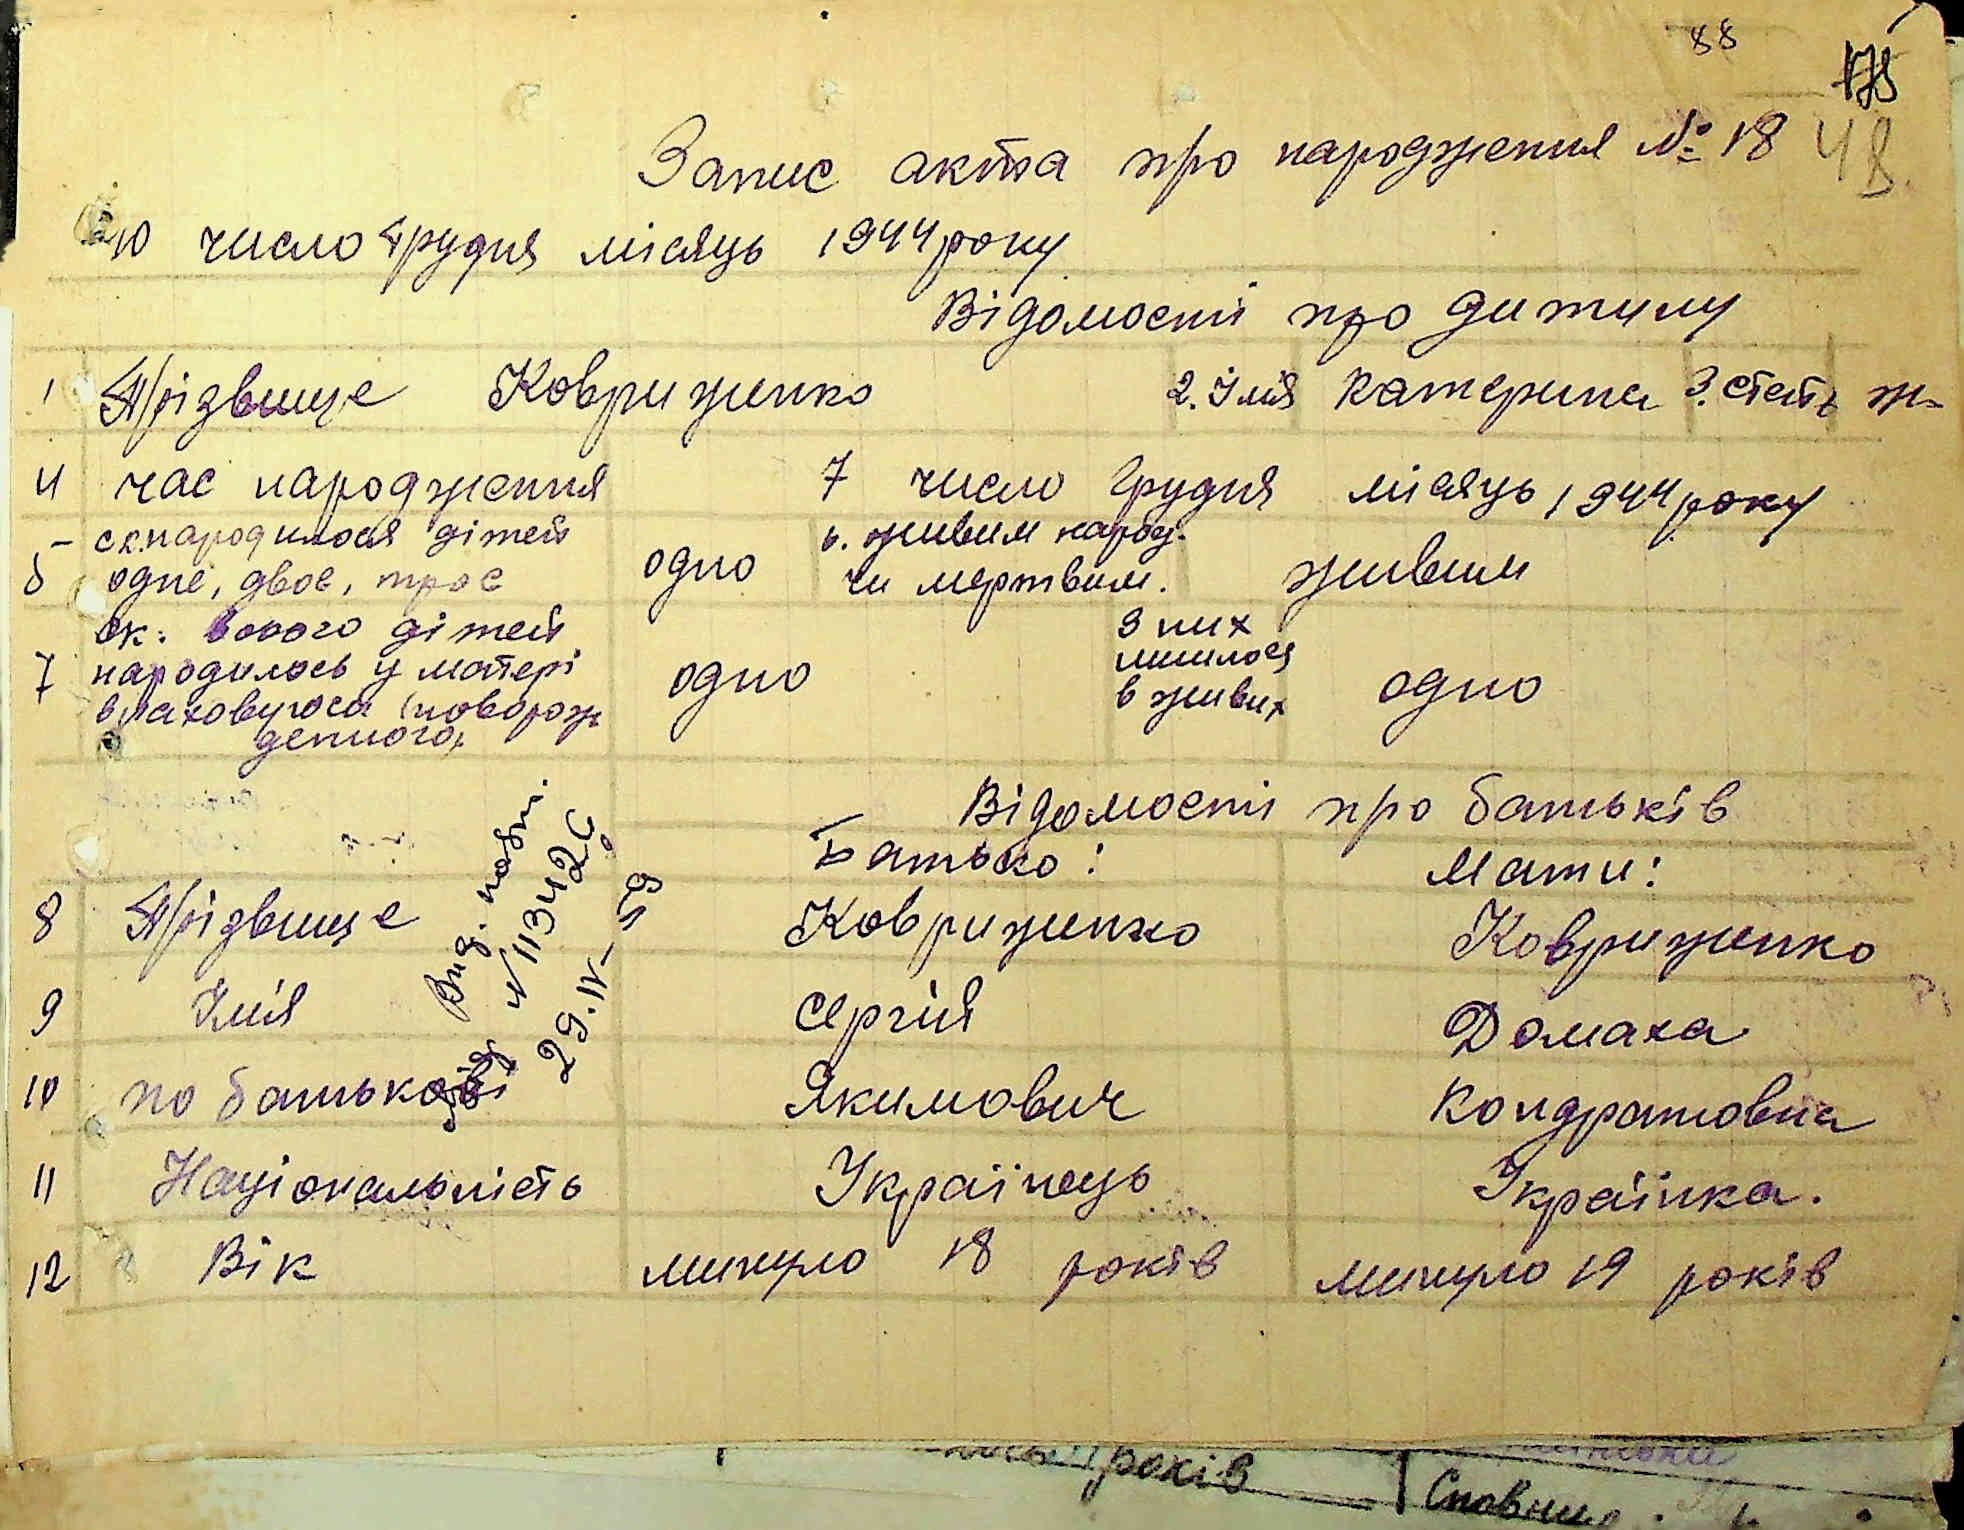 88
175
48.
Запис акта про народження № 18
10 число грудня місяць 1944 року
Відомості про дитину
1 Прізвище Ковриженко 2. Імя Катерина 3. стать ж
4 час народження 7 число грудня місяць 1944 року
5 ск. народилося дітей одне, двоє, троє одно 6. живим народ. чи мертвим. живим
7 ск. всього дітей народилось у матері враховуючи новорож денного одно з них лишилося в живих одно
Відомості про батьків
Батько: Мати:
8 Прізвище Ковриженко Ковриженко
9 Імя Сергій Домаха
10 по батькові Якимович Кондратовна
11 Національність Українець Українка.
12 Вік минуло 18 років минуло 19 років
Вид. повт.
29.IV-59
років